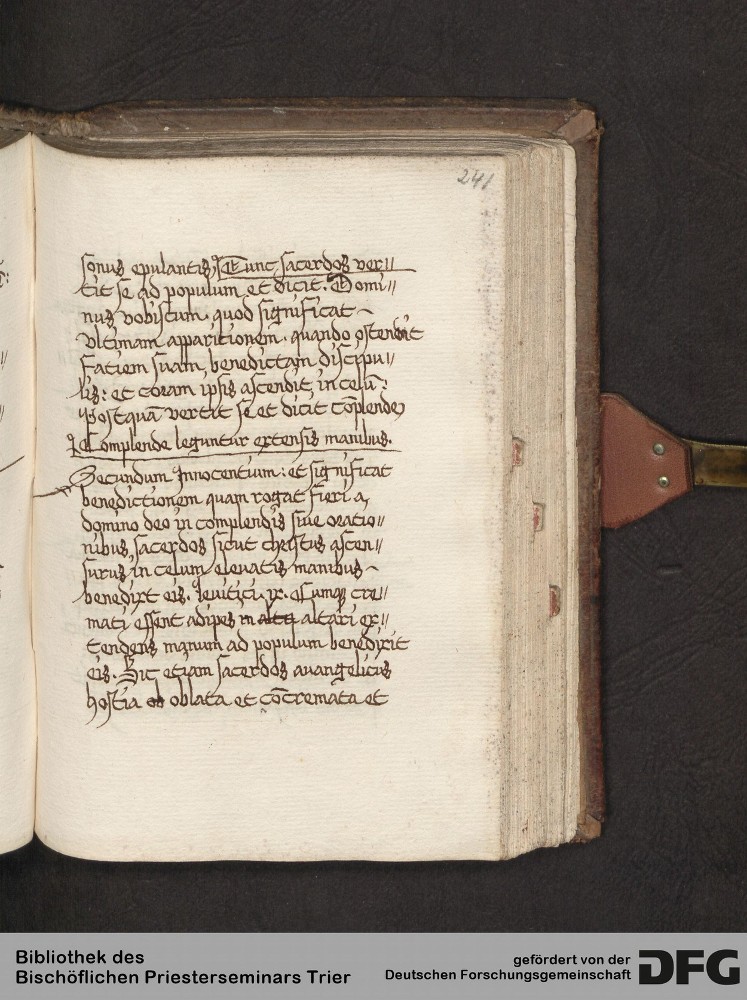 241
sonus epulantis, Tunc sacerdos ver//
tit se ad populum et dicit. Domi//
nus vobiscum. quod significat
vltimam apparitionem. quando ostendit
faciem suam, benedictam discipu//
lis: et coram ipsis ascendit in celū:
Postquā vertit se et dicit cōplende,
Complende leguntur extensis manibus.
Secundum Innocentium: et significat
benedictionem quam rogat fieri a,
domino deo in complendis siue oratio//
nibus, sacerdos sicut christus ascen//
surus in celum eleuatis manibus
benedixt eis. leuitici ix. Cumque cre//
mati essent adipes in alta altari ex//
tendens manum ad populum benedixit
eis. Sic etiam sacerdos auangelicus
hostia ob oblata et cōcremata et
Bibliothek des
Bischöflichen Priesterseminars Trier
gefördert von der
Deutschen Forschungsgemeinschaft
DFG